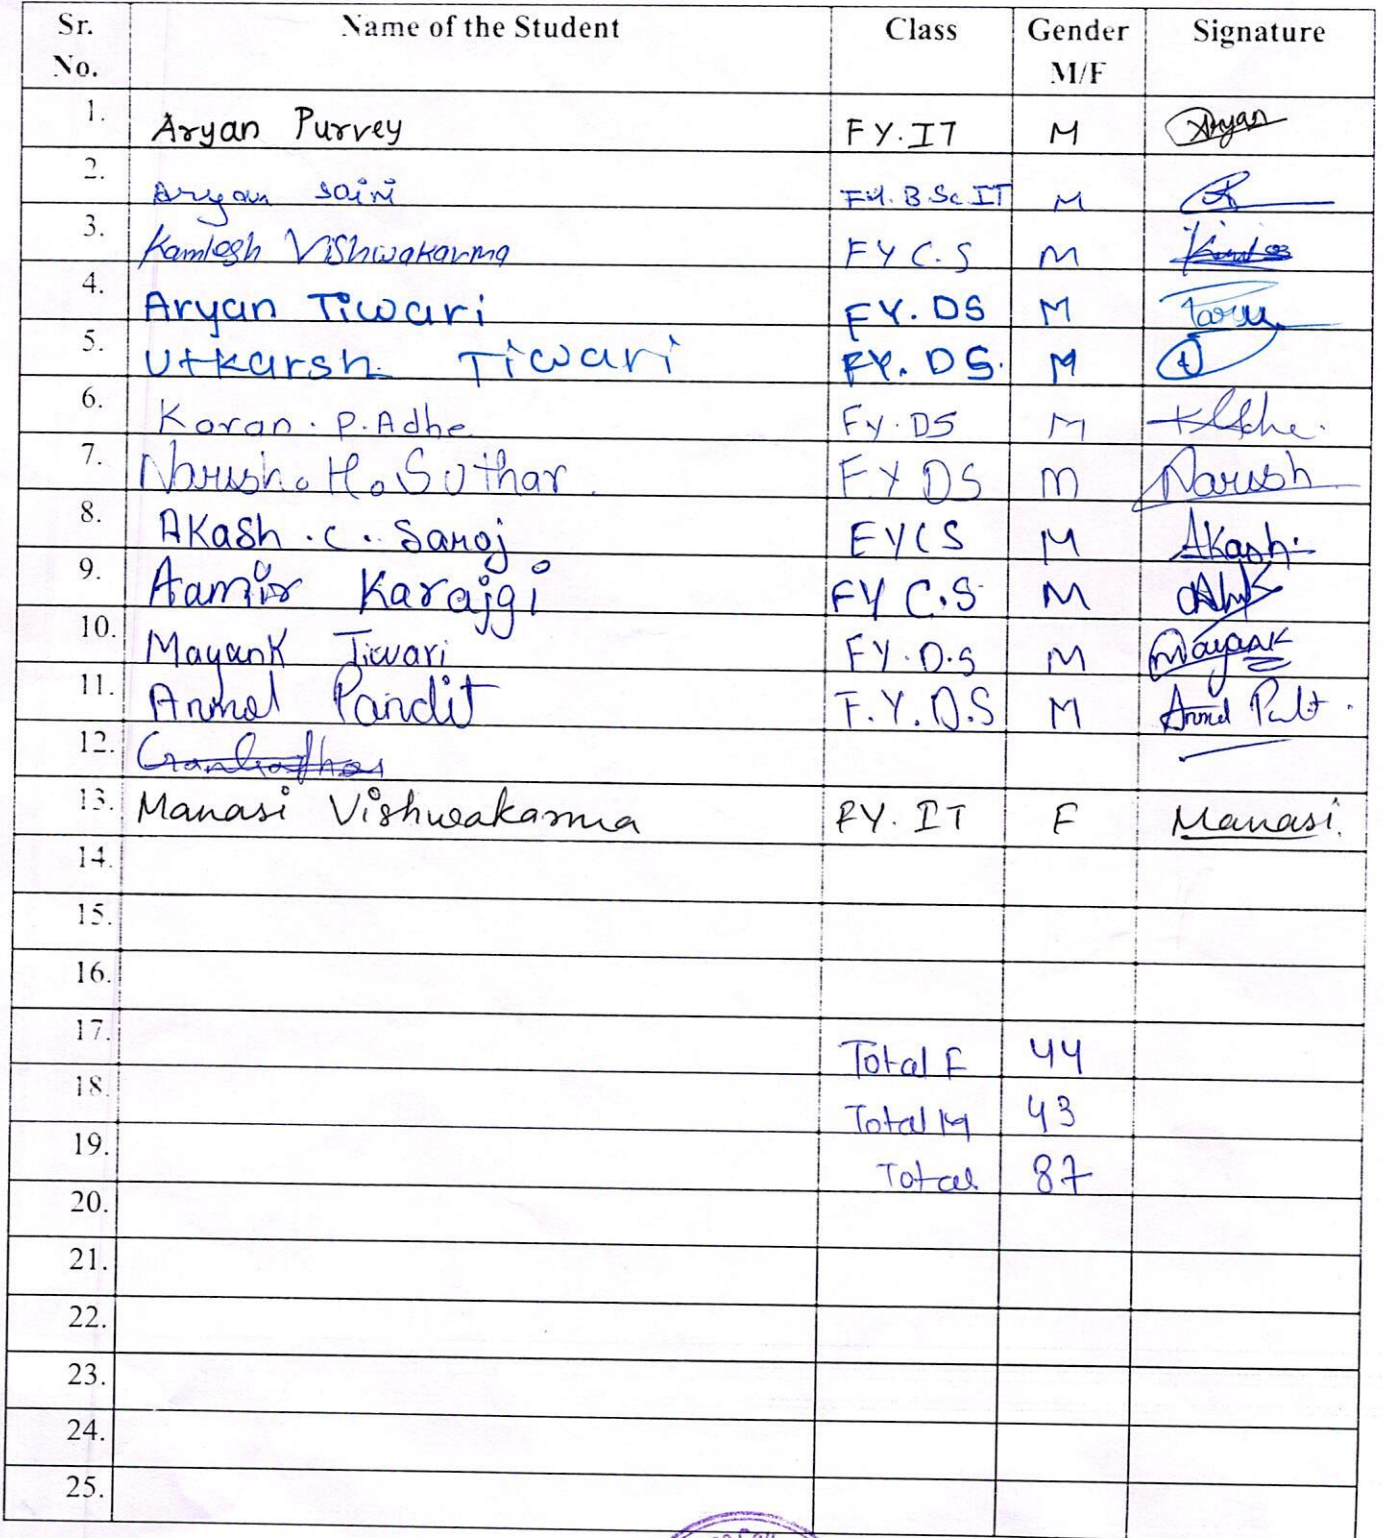 Sr. No. Name of the Student Class Gender M/F Signature
1. Aryan Purvey FY.IT M Aryan
2. Aryan saini FY.B.Sc.IT M
3. Kamlesh Vishwakarma FY C.S M
4. Aryan Tiwari FY.DS M
5. Utkarsh Tiwari FY.DS. M
6. Karan. P. Adhe FY.DS M
7. Narush. H. Suthar FY DS M Narush
8. Akash .C. Saroj FYCS M Akash
9. Aamir Karajgi FY C.S M
10. Mayank Tiwari FY.D.S M Mayank
11. Anmol Pandit F.Y.D.S M
12.
13. Manasi Vishwakarma FY.IT F Manasi.
14.
15.
16.
17. Total F 44
18. Total M 43
19. Total 87
20.
21.
22.
23.
24.
25.